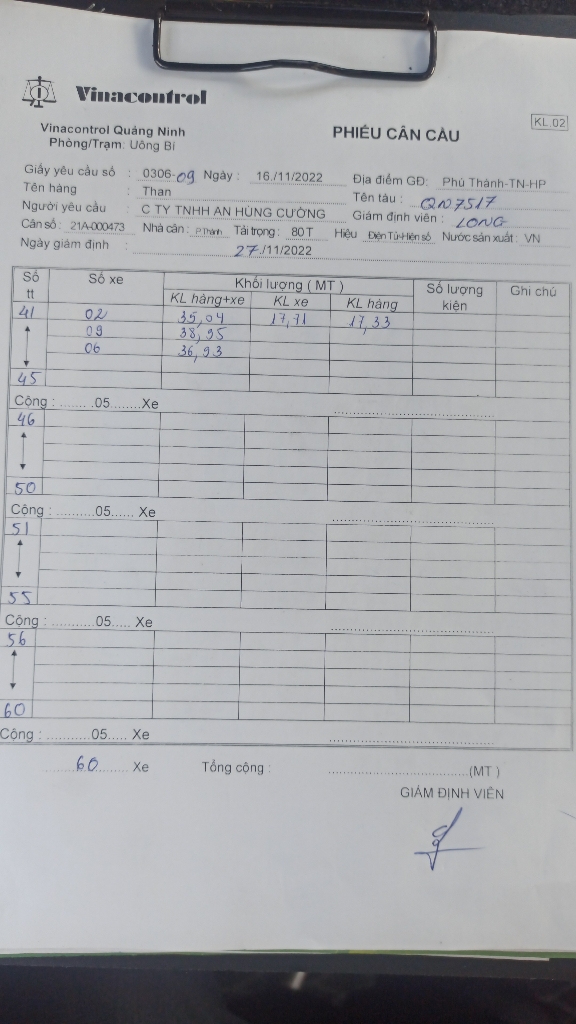 Vinacontrol
KL.02
Vinacontrol Quảng Ninh
Phòng/Trạm: Uông Bí
PHIẾU CÂN CẦU
Giấy yêu cầu số : 0306-09 Ngày : 16./11/2022 Địa điểm GĐ: Phú Thành-TN-HP
Tên hàng : Than Tên tàu : QN7517
Người yêu cầu : C TY TNHH AN HÙNG CƯỜNG Giám định viên : LONG
Cân số : 21A-000473 Nhà cân : P Thành Tải trọng : 80 T Hiệu Điện Tử-Hiện số Nước sản xuất : VN
Ngày giám định : 27/11/2022
Số tt Số xe Khối lượng ( MT ) Số lượng kiện Ghi chú
KL hàng+xe KL xe KL hàng
41 02 35,04 17,71 17,33
09 38,95
06 36,93
45
Cộng : ........05.......Xe
46
50
Cộng : ...........05...... Xe
51
55
Cộng : ...........05..... Xe
56
60
Cộng : ...........05..... Xe
60 Xe Tổng cộng : (MT )
GIÁM ĐỊNH VIÊN